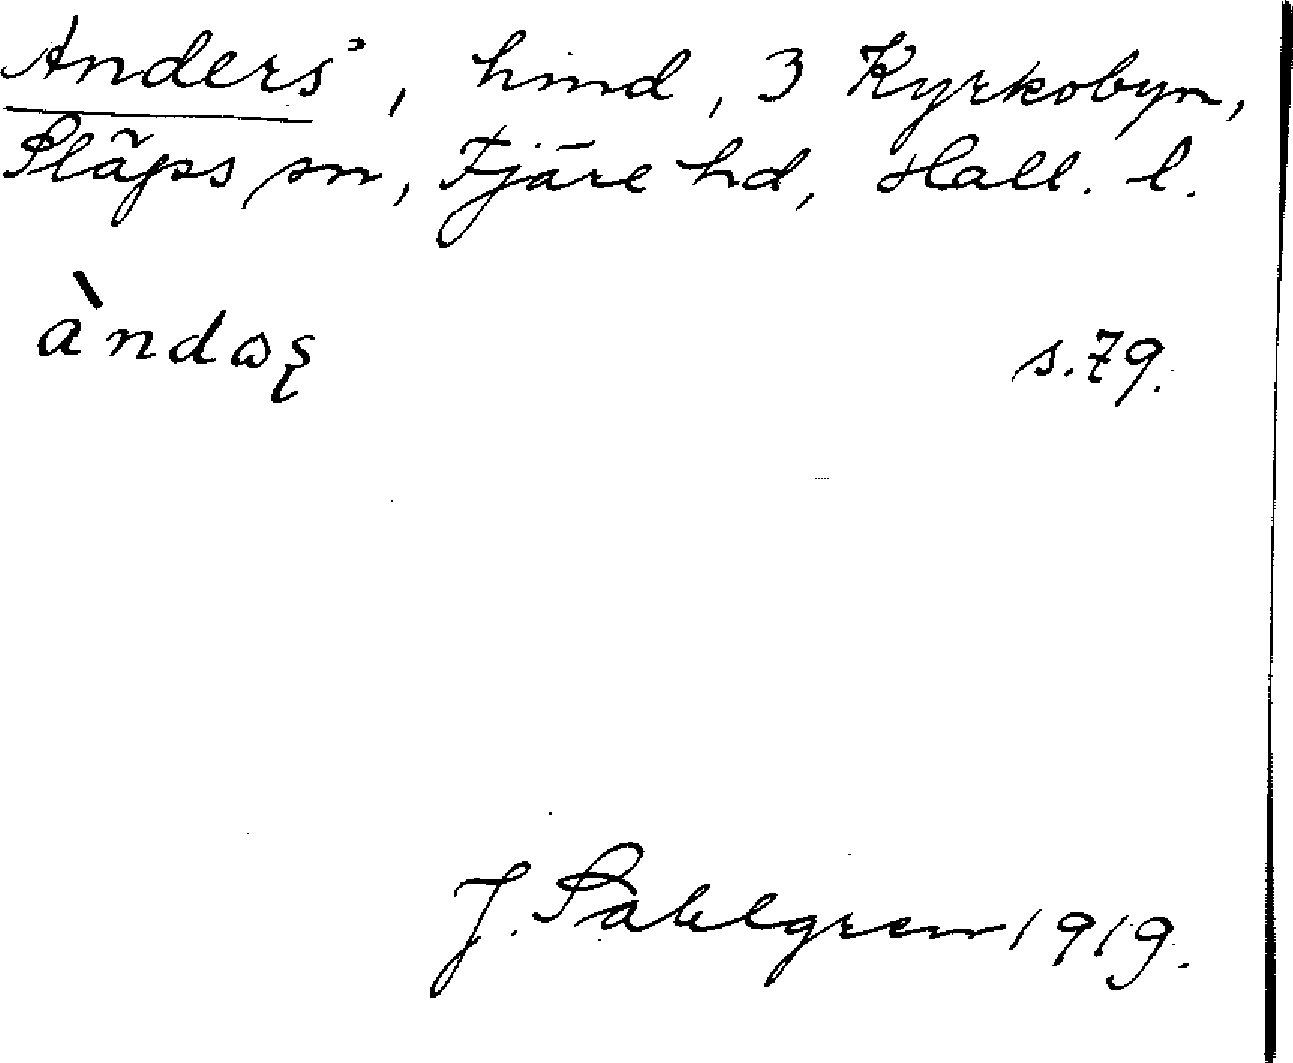 Anders', hmd, 3 Kyrkobyn,
Släps sn, Fjäre hd, Hall. l.
àndas̨
s. 79.
J. Sahlgren 1919.